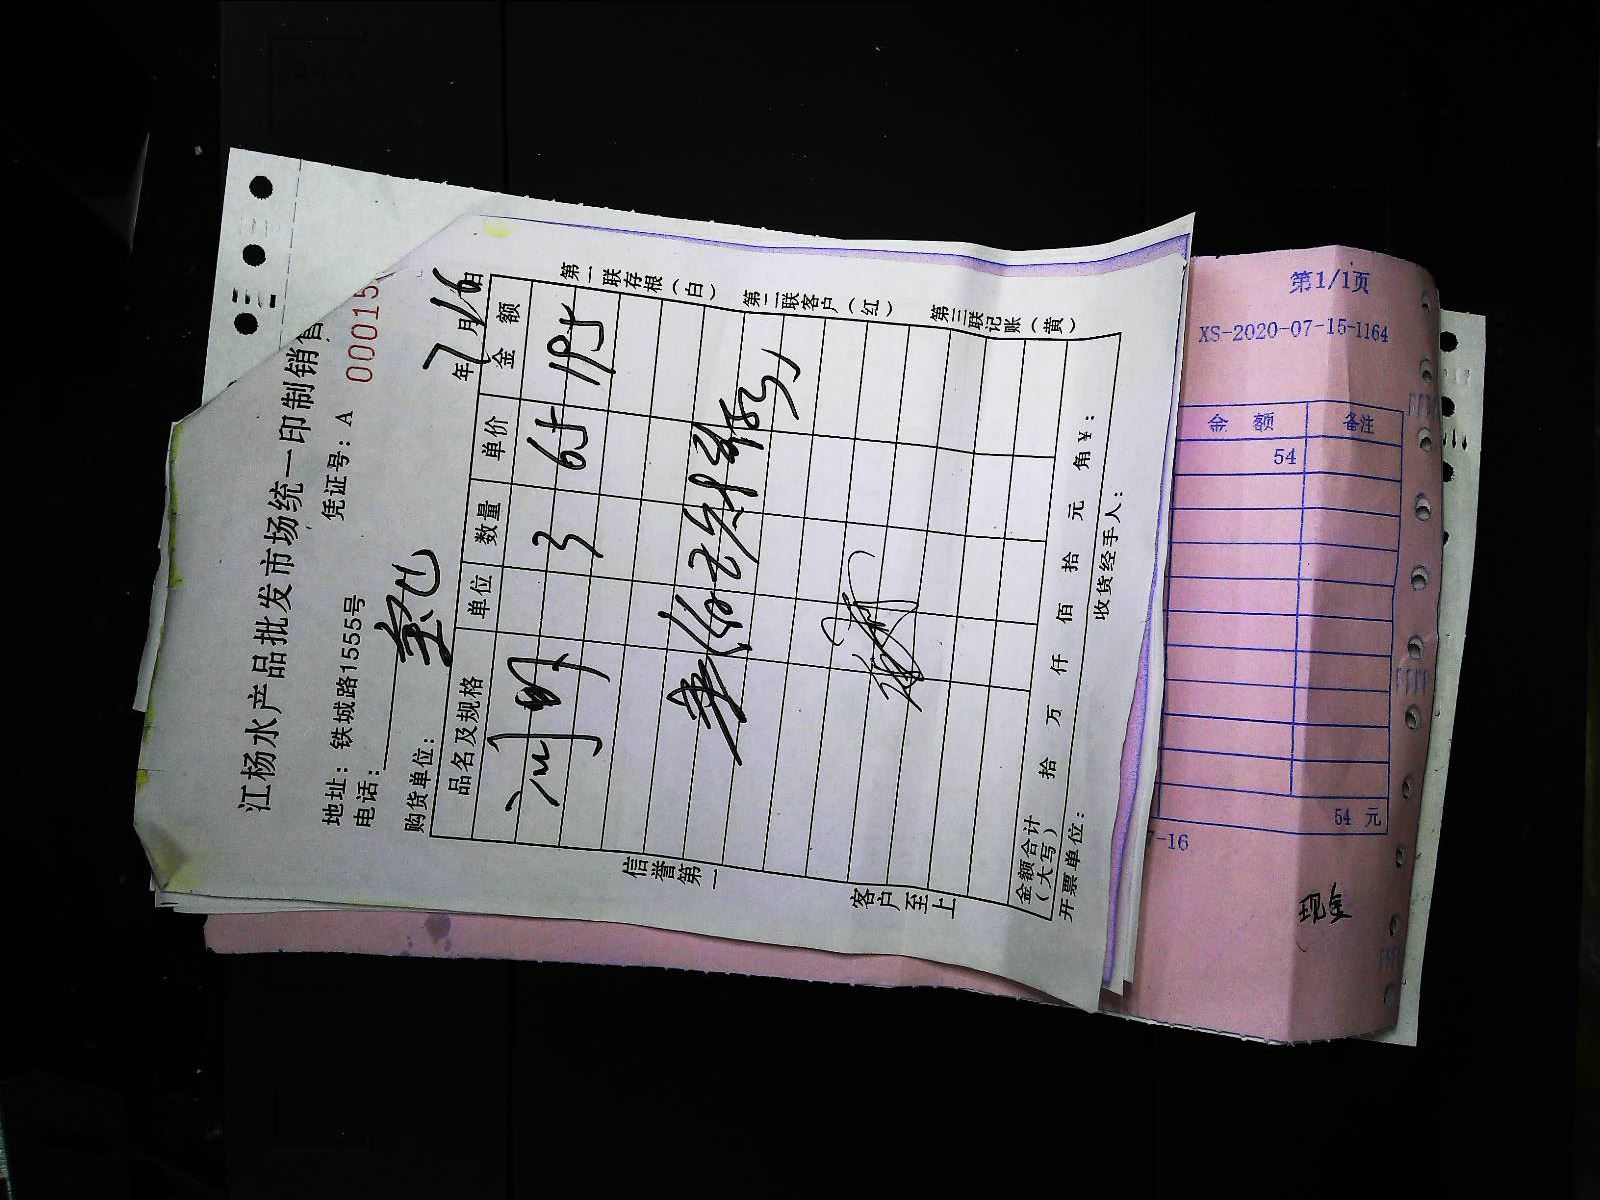 江杨水产品批发市场统一印制销售
地址：铁城路1555号
凭证号：A 00015
电话：
购货单位：
年 7 月 16 日
品名及规格 单位 数量 单价 金额
3 65 195
第一联存根（白）
第二联客户（红）
第三联记账（黄）
信誉第一
客户至上
金额合计（大写） 拾 万 仟 佰 拾 元 角 ￥：
开票单位： 收货经手人：
第1/1页
XS-2020-07-15-1164
金额 备注
54
54 元
7-16
现金